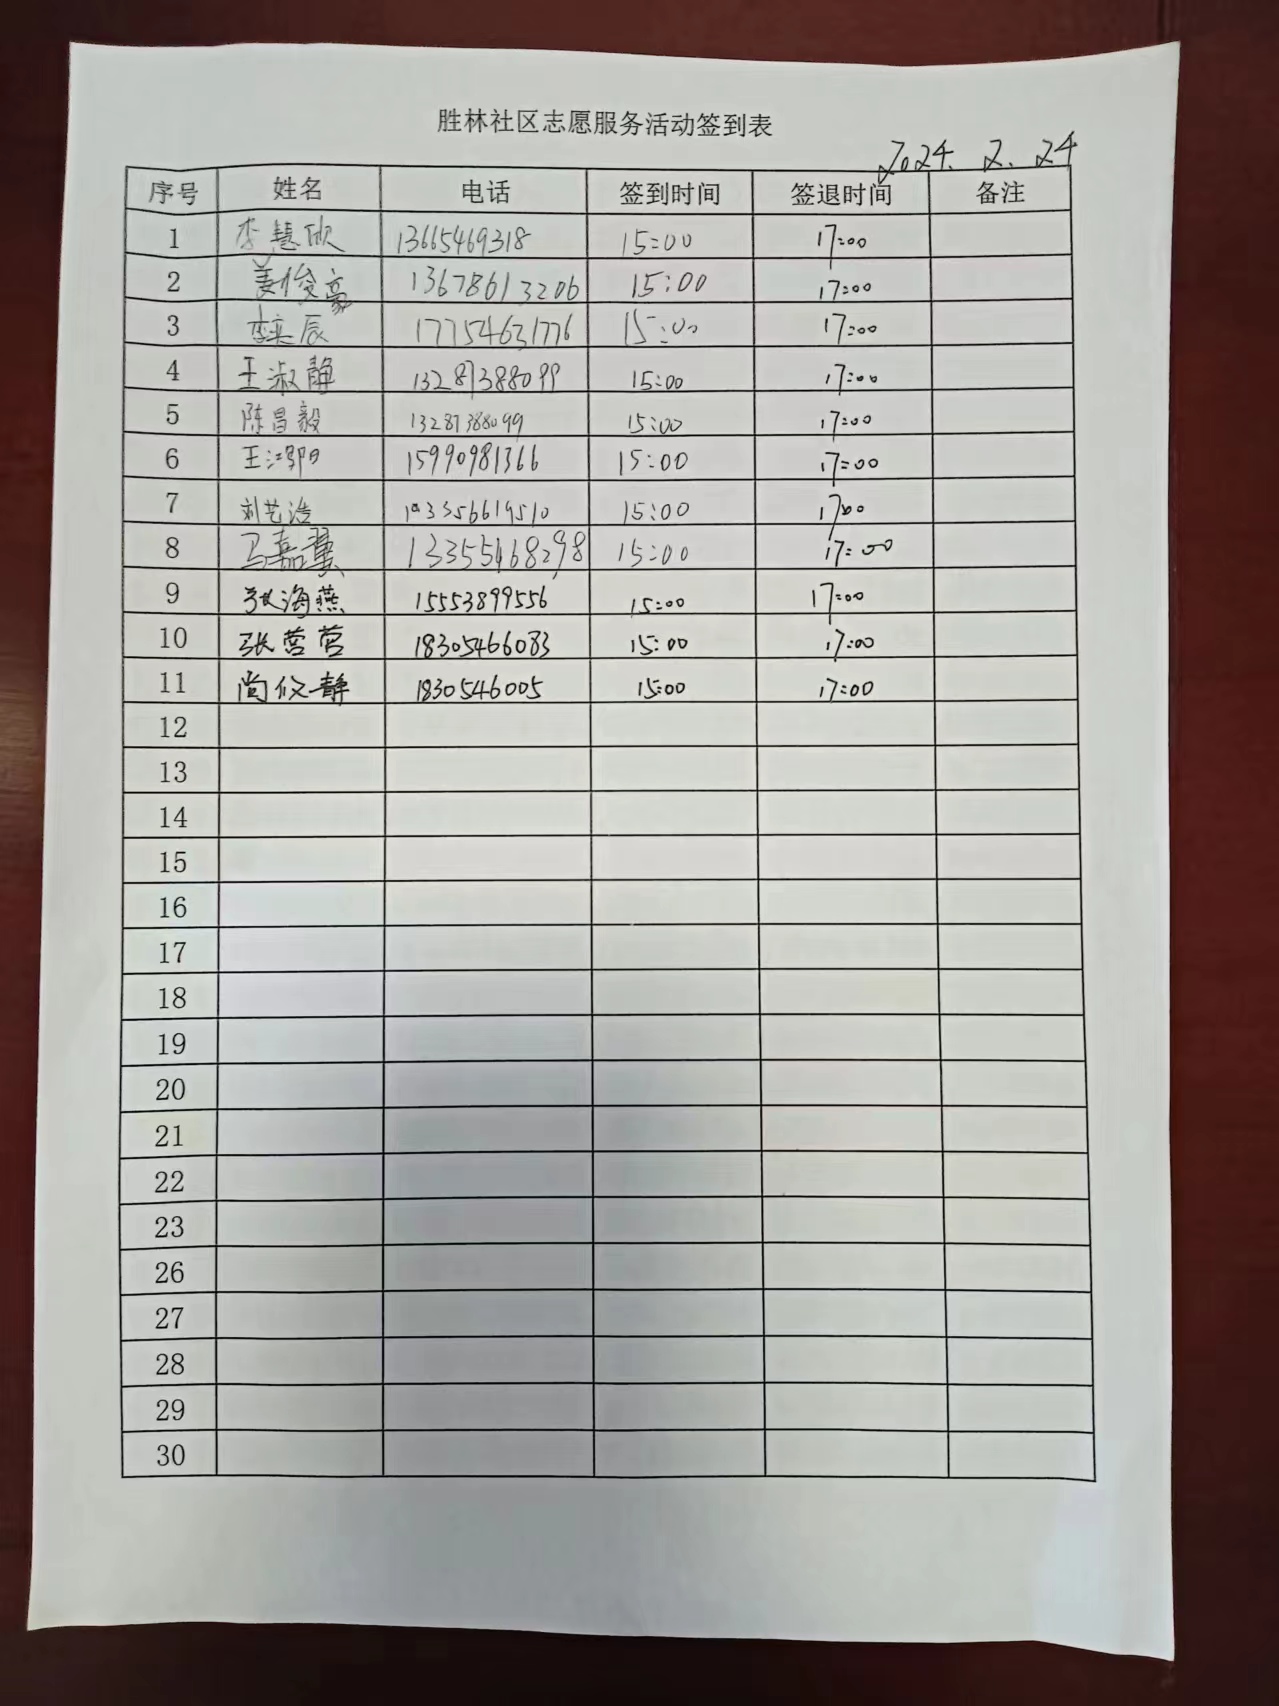 胜林社区志愿服务活动签到表
2024. 2. 24
序号 姓名 电话 签到时间 签退时间 备注
1 李慧欣 13665469318 15:00 17:00
2 姜俊豪 13678613206 15:00 17:00
3 李奕辰 17754631776 15:00 17:00
4 王淑静 13287388099 15:00 17:00
5 陈昌毅 13287388099 15:00 17:00
6 王江 15990981366 15:00 17:00
7 刘艺浩 15:00 17:00
8 马嘉翼 13355468298 15:00 17:00
9 张海燕 15553899556 15:00 17:00
10 张营营 18305466083 15:00 17:00
11 尚仪静 1830546005 15:00 17:00
12
13
14
15
16
17
18
19
20
21
22
23
26
27
28
29
30